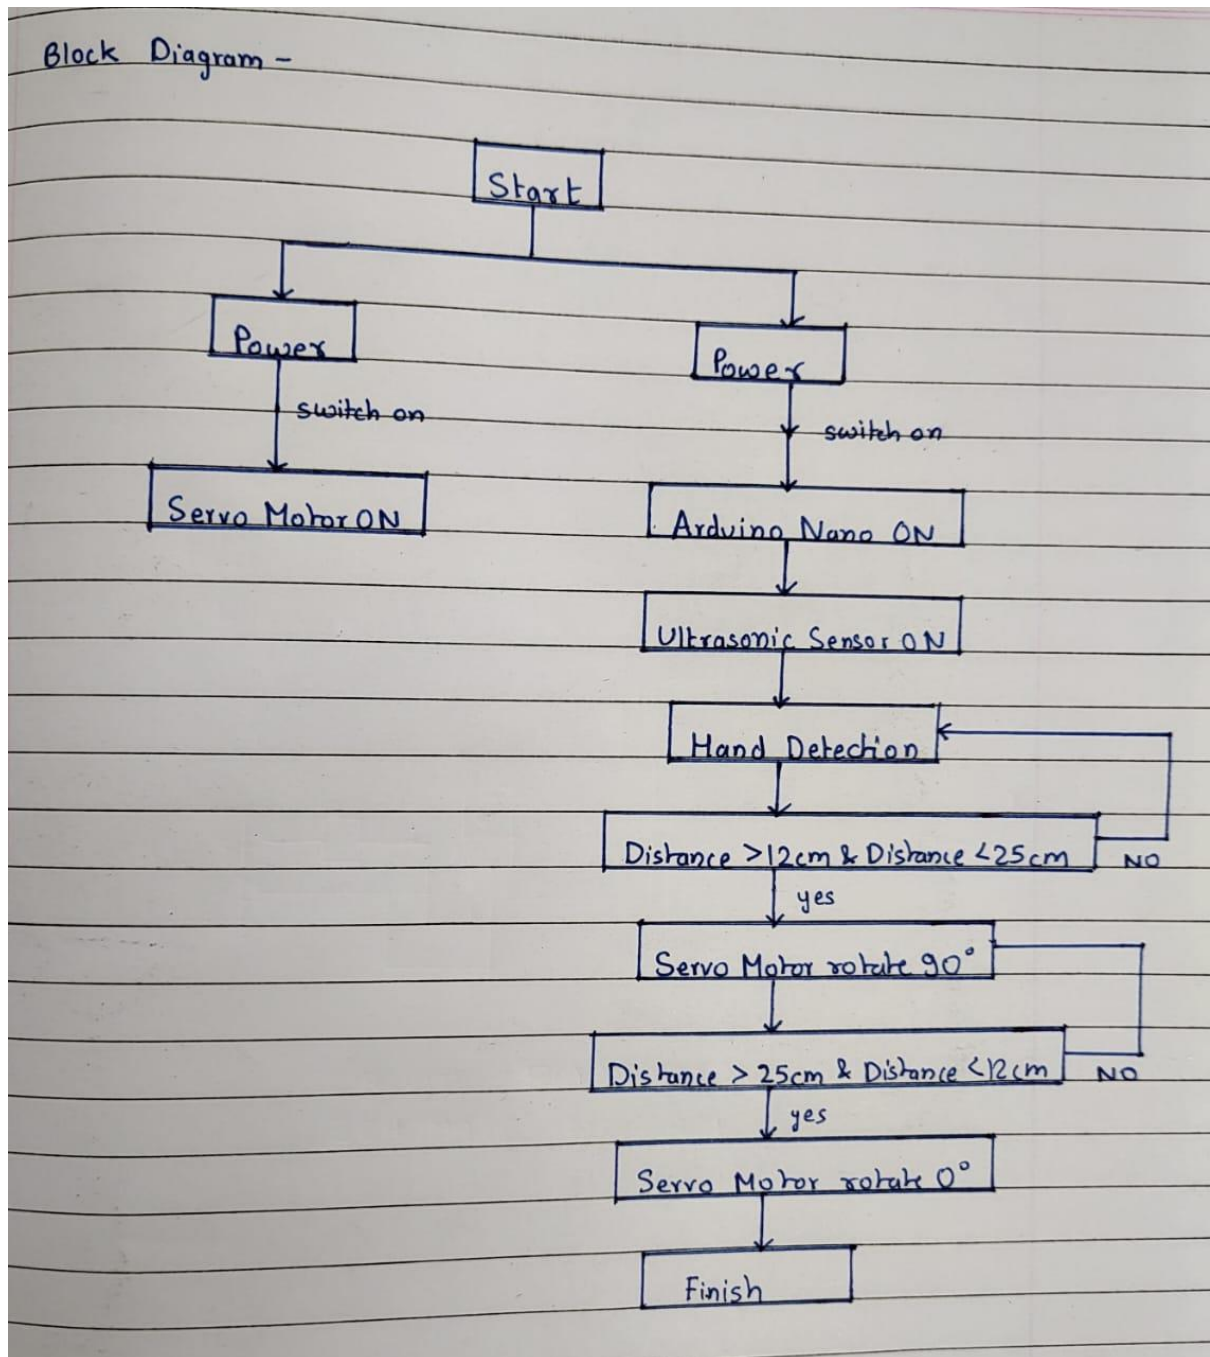 Block Diagram -
Start
Power
Power
switch on
switch on
Servo Motor ON
Arduino Nano ON
Ultrasonic Sensor ON
Hand Detection
Distance >12cm & Distance <25cm
NO
yes
Servo Motor rotate 90°
Distance > 25cm & Distance <12cm
NO
yes
Servo Motor rotate 0°
Finish